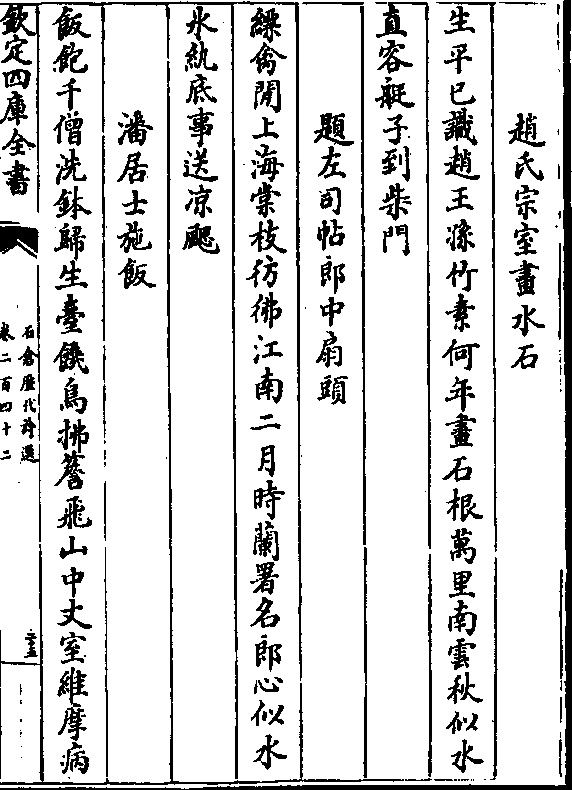 趙氏宗室畫水石
生平已識趙王孫竹素何年畫石根萬里南雲秋似水
直容艇子到柴門
題左司帖郎中扇頭
繅禽閒上海棠枝彷彿江南二月時蘭署名郎心似水
氷紈底事送凉颸
潘居士施飯
飯飽千僧洗鉢歸生臺饑鳥拂簷飛山中丈室維摩病
欽定四庫全書
石倉歷代詩選
卷二百四十二